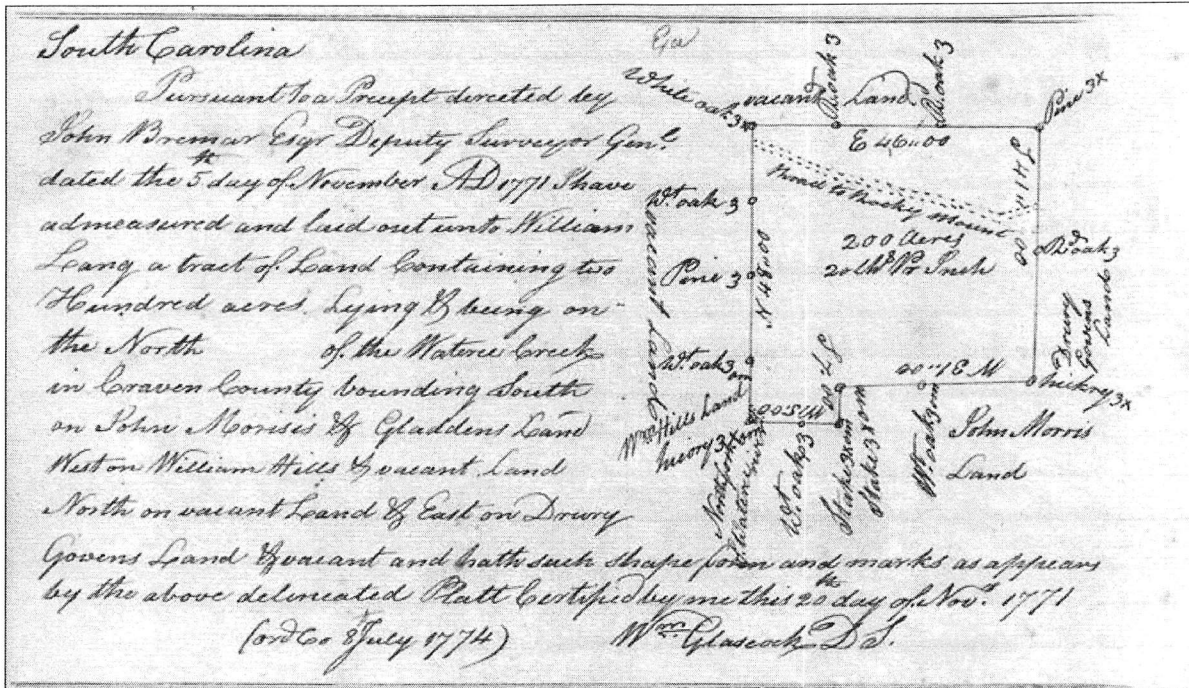 South Carolina
Pursuant to a Precept directed by
John Bremar Esqr Deputy Surveyor Genl.
dated the 5th day of November AD 1771 I have
admeasured and laid out unto William
Lang a tract of Land Containing two
Hundred acres. Lying & being on
the North of the Wateree Creek
in Craven County bounding South
on John Morisis & Gladdens Land
West on William Hills & vacant Land
North on vacant Land & East on Drury
Govens Land & vacant and hath such shape form and marks as appears
by the above delineated Platt Certified by me this 20th day of Novr. 1771
(ord Co 8 July 1774) Wm Glascock D S.
White oak 3x
vacant Land
Rd oak 3
Rd oak 3
Pine 3x
E 46..00
road to Rocky Mount
S 41..00
200 Acres
20 Chs Pr Inch
Wt. oak 3
Pine 3
Wt. oak 3
N 48..00
vacant Land
Rd oak 3
Drury Govens Land
hickry 3x
W 31..00
S 7..00
W 15..00
Wm Hills Land
hicory 3x
Wt oak 3
Stake 3x
Stake 3x
Wt. oak 3
John Morris
Land